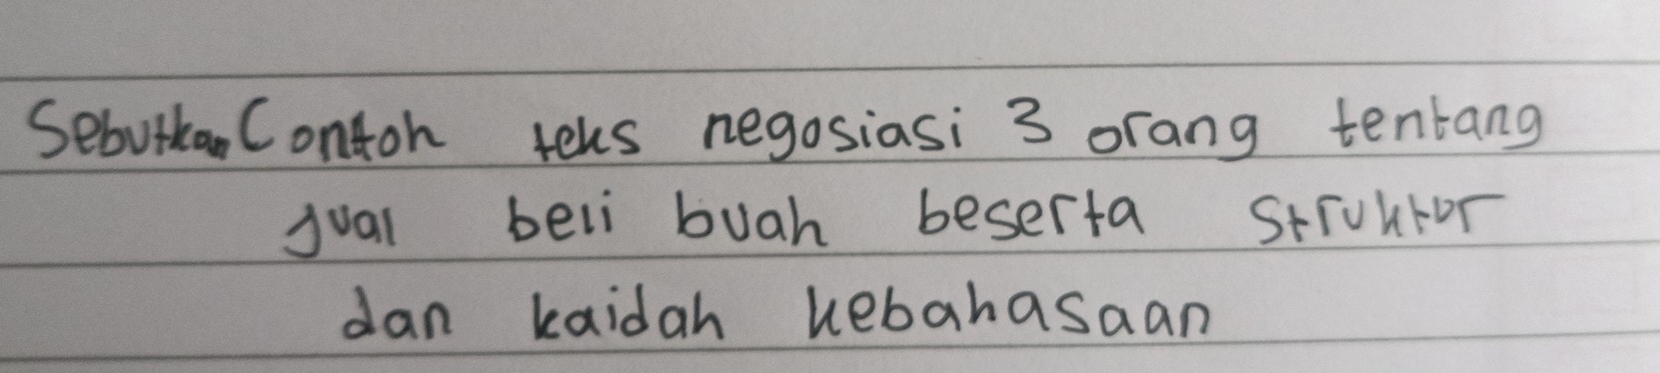 Sebutkan Contoh teks negosiasi 3 orang tentang
jual beli buah beserta struktur
dan kaidah kebahasaan